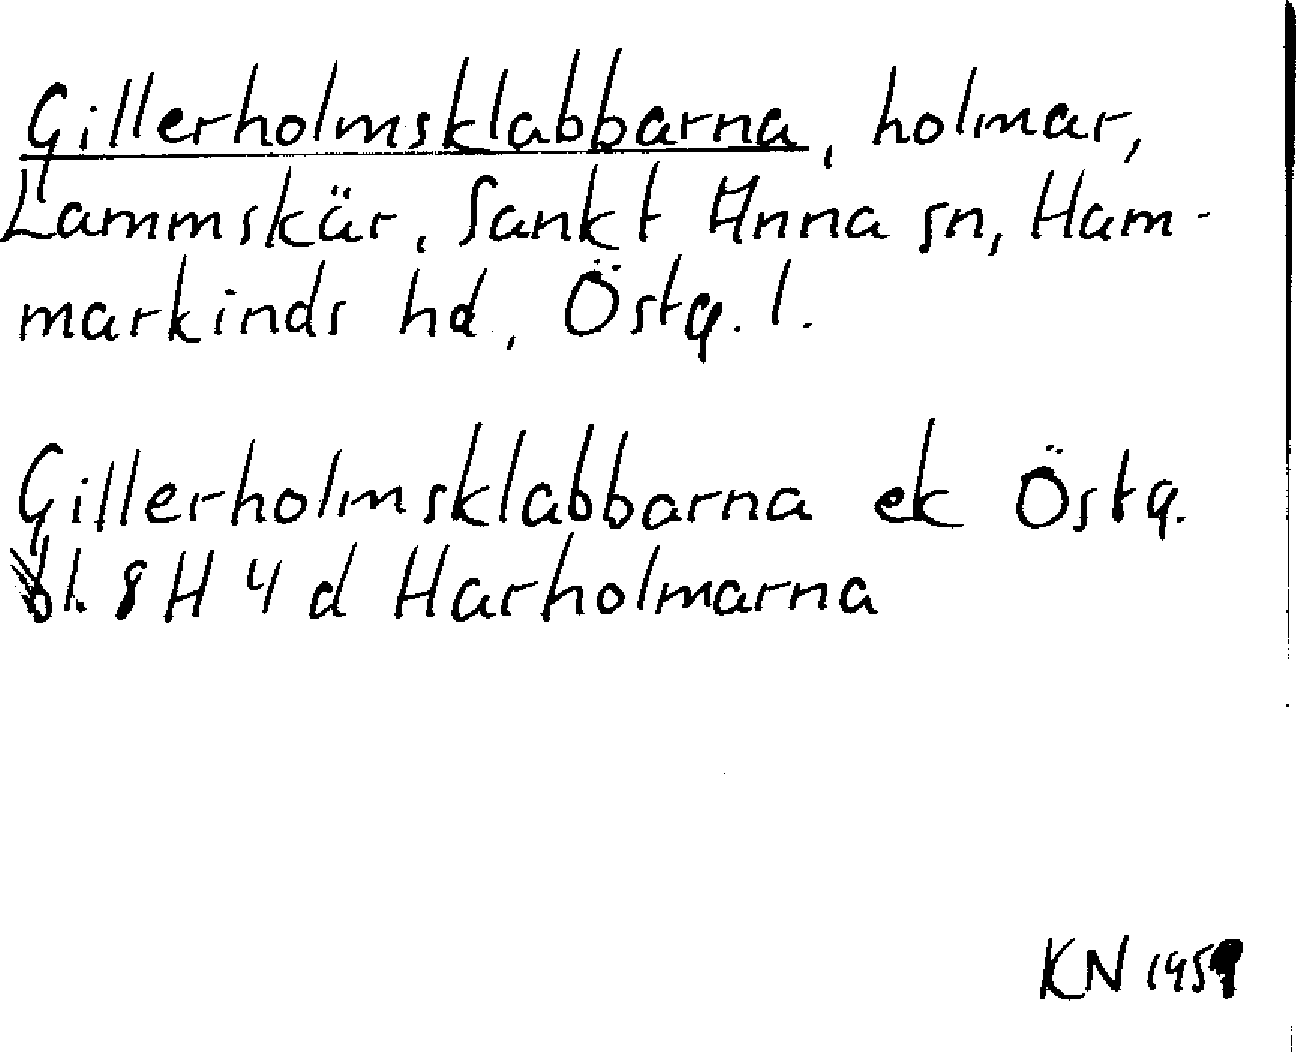 Gillerholmsklabbarna, holmar,
Lammskär, Sankt Anna sn, Ham-
markinds hd, Östg. l.
Gillerholmsklabbarna ek Östg.
bl. 8 H 4 d Harholmarna
KN 1959